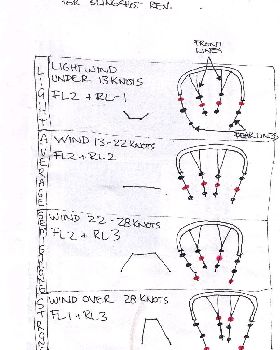 FOR SLINGSHOT REV.
FRONT LINES
LIGHT
LIGHT WIND
UNDER 13 KNOTS
FL2 + RL-1
REAR LINES
AVERAGE
WIND 13-22 KNOTS
FL2 + RL2
WIND 22-28 KNOTS
FL2 + RL3
WIND OVER 28 KNOTS
FL1 + RL3